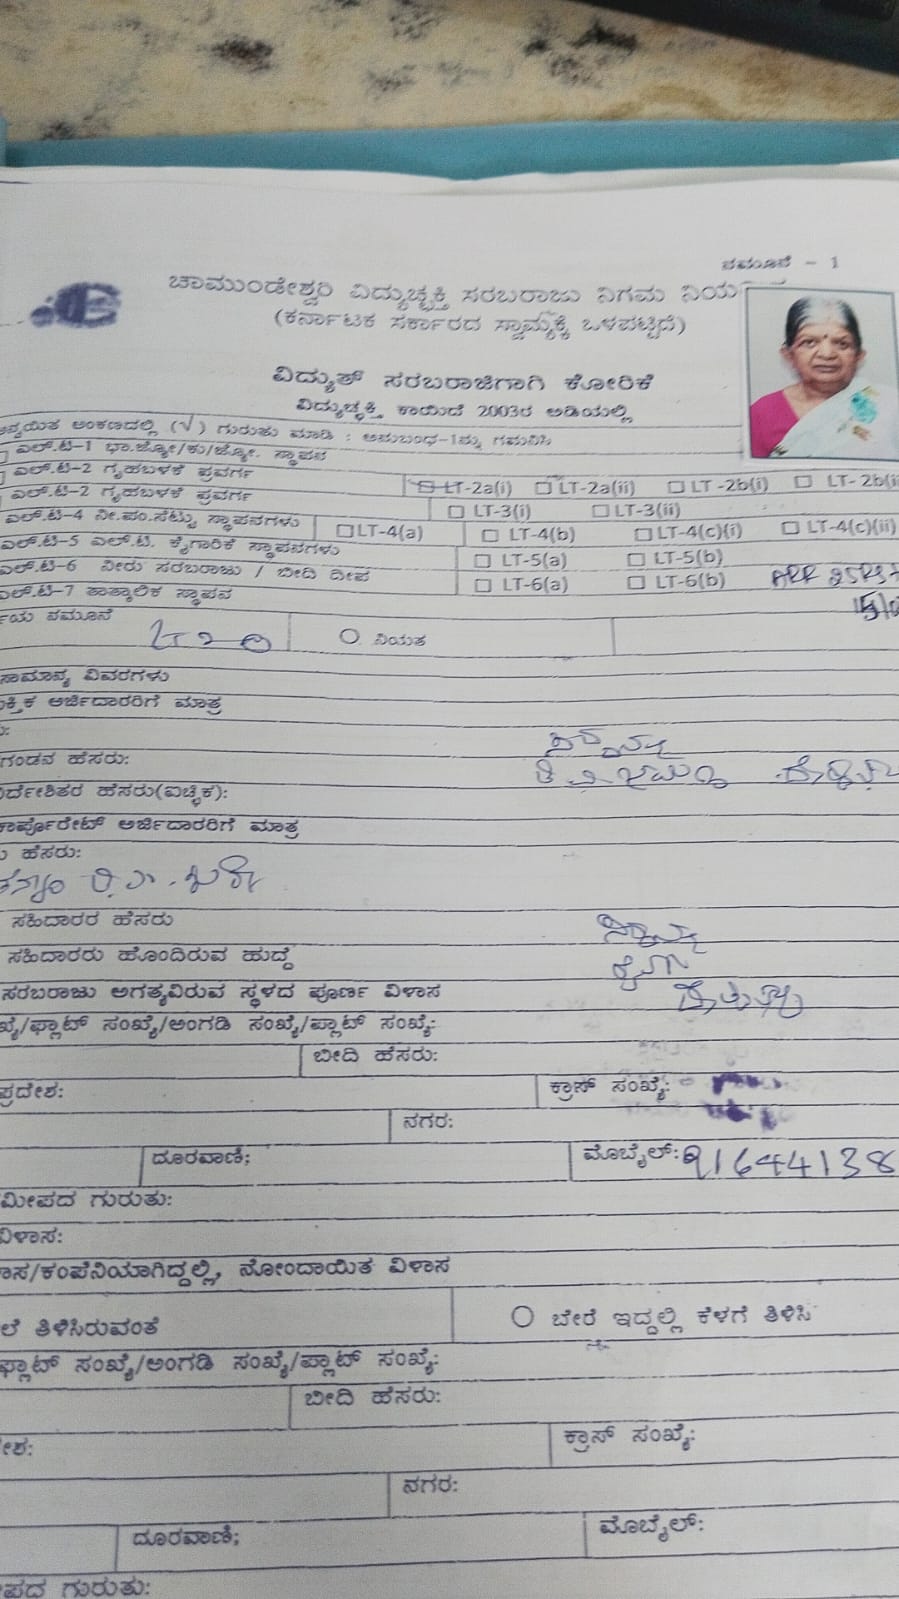 ನಮೂನೆ - 1
ಚಾಮುಂಡೇಶ್ವರಿ ವಿದ್ಯುಚ್ಛಕ್ತಿ ಸರಬರಾಜು ನಿಗಮ
(ಕರ್ನಾಟಕ ಸರ್ಕಾರದ ಸ್ವಾಮ್ಯಕ್ಕೆ ಒಳಪಟ್ಟಿದೆ)
ವಿದ್ಯುತ್ ಸರಬರಾಜಿಗಾಗಿ ಕೋರಿಕೆ
ವಿದ್ಯುಚ್ಛಕ್ತಿ ಕಾಯಿದೆ 2003ರ ಅಡಿಯಲ್ಲಿ
ಅಂಕಣದಲ್ಲಿ (√) ಗುರುತು ಮಾಡಿ : ಅನುಬಂಧ-1ನ್ನು ಗಮನಿಸಿ
ಎಲ್.ಟಿ-1 ಭಾ.ಜ್ಯೋ/ಕು/ಜ್ಯೋ. ಸ್ಥಾಪನ
ಎಲ್.ಟಿ-2 ಗೃಹಬಳಕೆ ಪ್ರವರ್ಗ
ಎಲ್.ಟಿ-2 ಗೃಹಬಳಕೆ ಪ್ರವರ್ಗ LT-2a(i) LT-2a(ii) LT -2b(i) LT- 2b(i
LT-3(i) LT-3(ii)
ಎಲ್.ಟಿ-4 ನೀ.ಪಂ.ಸೆಟ್ಟು ಸ್ಥಾಪನಗಳು LT-4(a) LT-4(b) LT-4(c)(i) LT-4(c)(ii)
ಎಲ್.ಟಿ-5 ಎಲ್.ಟಿ. ಕೈಗಾರಿಕೆ ಸ್ಥಾಪನಗಳು LT-5(a) LT-5(b)
ಎಲ್.ಟಿ-6 ನೀರು ಸರಬರಾಜು / ಬೀದಿ ದೀಪ LT-6(a) LT-6(b)
ಎಲ್.ಟಿ-7 ತಾತ್ಕಾಲಿಕ ಸ್ಥಾಪನ
ನಮೂನೆ
ನಿಯತ
ಸಾಮಾನ್ಯ ವಿವರಗಳು
ಅರ್ಜಿದಾರರಿಗೆ ಮಾತ್ರ
ಗಂಡನ ಹೆಸರು:
ಹೆಸರು(ಐಚ್ಛಿಕ):
ಕಾರ್ಪೊರೇಟ್ ಅರ್ಜಿದಾರರಿಗೆ ಮಾತ್ರ
ಹೆಸರು:
ಸಹಿದಾರರ ಹೆಸರು
ಸಹಿದಾರರು ಹೊಂದಿರುವ ಹುದ್ದೆ
ಸರಬರಾಜು ಅಗತ್ಯವಿರುವ ಸ್ಥಳದ ಪೂರ್ಣ ವಿಳಾಸ
ಖ್ಯೆ/ಫ್ಲಾಟ್ ಸಂಖ್ಯೆ/ಅಂಗಡಿ ಸಂಖ್ಯೆ/ಪ್ಲಾಟ್ ಸಂಖ್ಯೆ:
ಬೀದಿ ಹೆಸರು:
ಪ್ರದೇಶ: ಕ್ರಾಸ್ ಸಂಖ್ಯೆ:
ನಗರ:
ದೂರವಾಣಿ; ಮೊಬೈಲ್: 91644138
ಮೀಪದ ಗುರುತು:
ವಿಳಾಸ:
ಾಸ/ಕಂಪೆನಿಯಾಗಿದ್ದಲ್ಲಿ, ನೋಂದಾಯಿತ ವಿಳಾಸ
ಲೆ ತಿಳಿಸಿರುವಂತೆ ಬೇರೆ ಇದ್ದಲ್ಲಿ ಕೆಳಗೆ ತಿಳಿಸಿ
ಫ್ಲಾಟ್ ಸಂಖ್ಯೆ/ಅಂಗಡಿ ಸಂಖ್ಯೆ/ಪ್ಲಾಟ್ ಸಂಖ್ಯೆ:
ಬೀದಿ ಹೆಸರು:
ೇಶ: ಕ್ರಾಸ್ ಸಂಖ್ಯೆ:
ನಗರ:
ದೂರವಾಣಿ; ಮೊಬೈಲ್:
ೀಪದ ಗುರುತು: